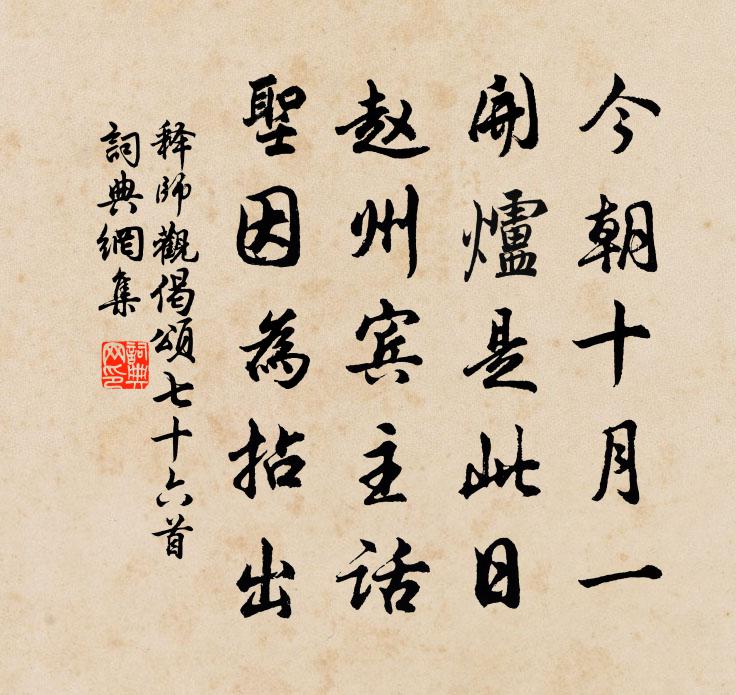 今朝十月一
開爐是此日
赵州宾主话
聖因為拈出
释師觀偈頌七十六首
詞典網集
詞典网印